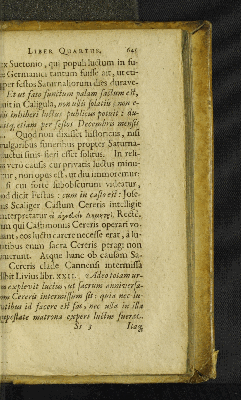 LIBER QUARTUS. 645
ex Suetonio, qui populi luctum in fu-
Germanici tantum fuisse ait, ut eu-
per festos Saturnaliorum dies durave-
Et ut fato functum palam factum est,
uit in Caligula, non ullis solatiis, non e-
inhiberi luctus publicus potuit: du-
etiam per festos Decembris mensis
Quod non dixisset historicus, nisi
vulgaribus funeribus propter Saturna-
luctus finis fieri esset solitus. In reli-
vero causis cur privatis luctus minu-
tur, non opus est, ut diu immoremur:
si cui forte subobscurum videatur,
od dicit Festus: cum in casto est: Jose-
us Scaliger Castum Cereris intelligit
interpretatur Recte,
m qui Castimonus Cereris operari vo-
unt, eos luctu carere necesse erat, à lu-
ntibus enim sacra Cereris peragi non
uerunt. Atque hanc ob causam Sa-
Cereris clade Cannensi intermissa
ribit Livius lib. XXII. Adeo totam ur-
m explevit luctus, ut sacrum anniversa-
m Cereris intermissum sit: quia nec lu-
ntibus id facere est fas, nec ulla in illa
mpestate matrona expers luctus fuerat.
Ss 3 Itaq;